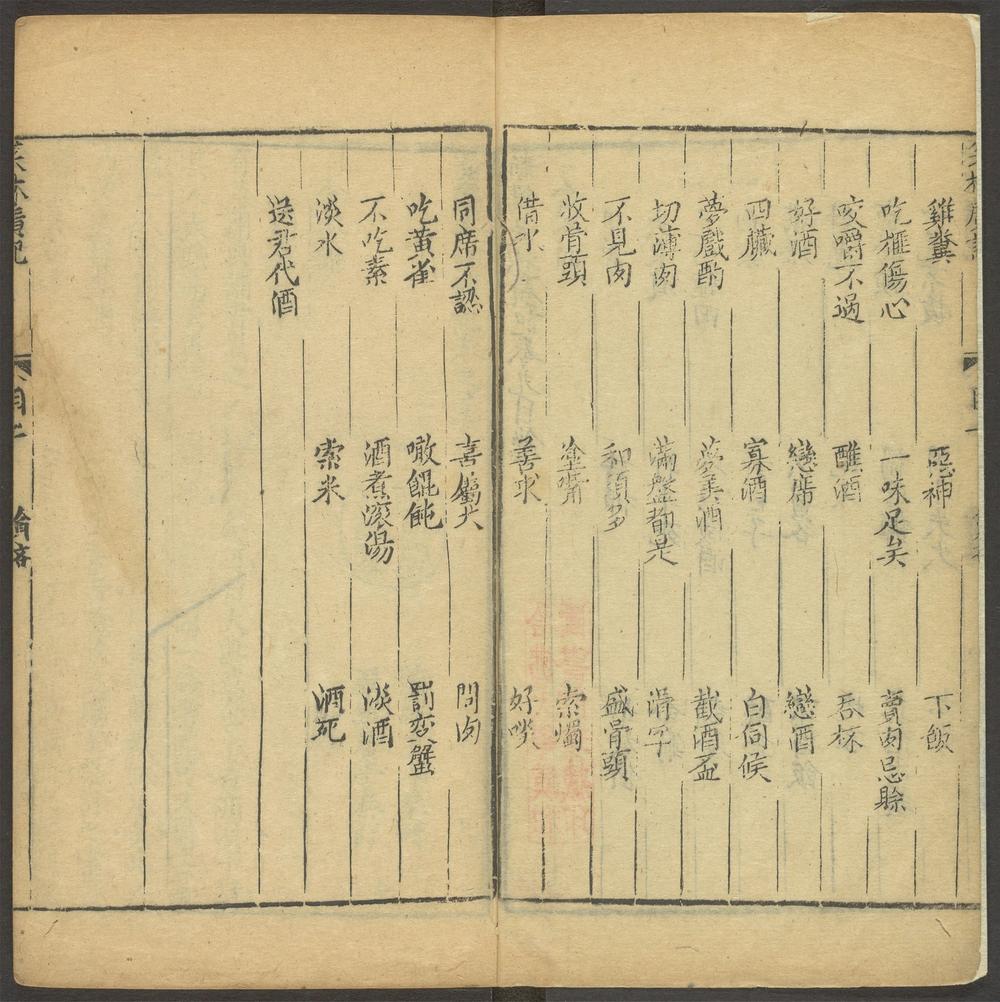 雞糞 惡神 下飯
吃榧傷心 一味足矣 賣肉忌賒
咬嚼不過 醮酒 吞杯
好酒 戀席 戀酒
四臟 寡酒 白伺候
夢戲酌 夢美酒 截酒盃
切薄肉 滿盤都是 滑字
不見肉 和頭多 盛骨頭
收骨頭 塗嘴 索燭
借水 善求 好啖
同席不認 喜屬犬 問肉
吃黃雀 啖餛飩 罰變蟹
不吃素 酒煮滾湯 淡酒
淡水 索米 酒死
送君代酒
笑林廣記 目二